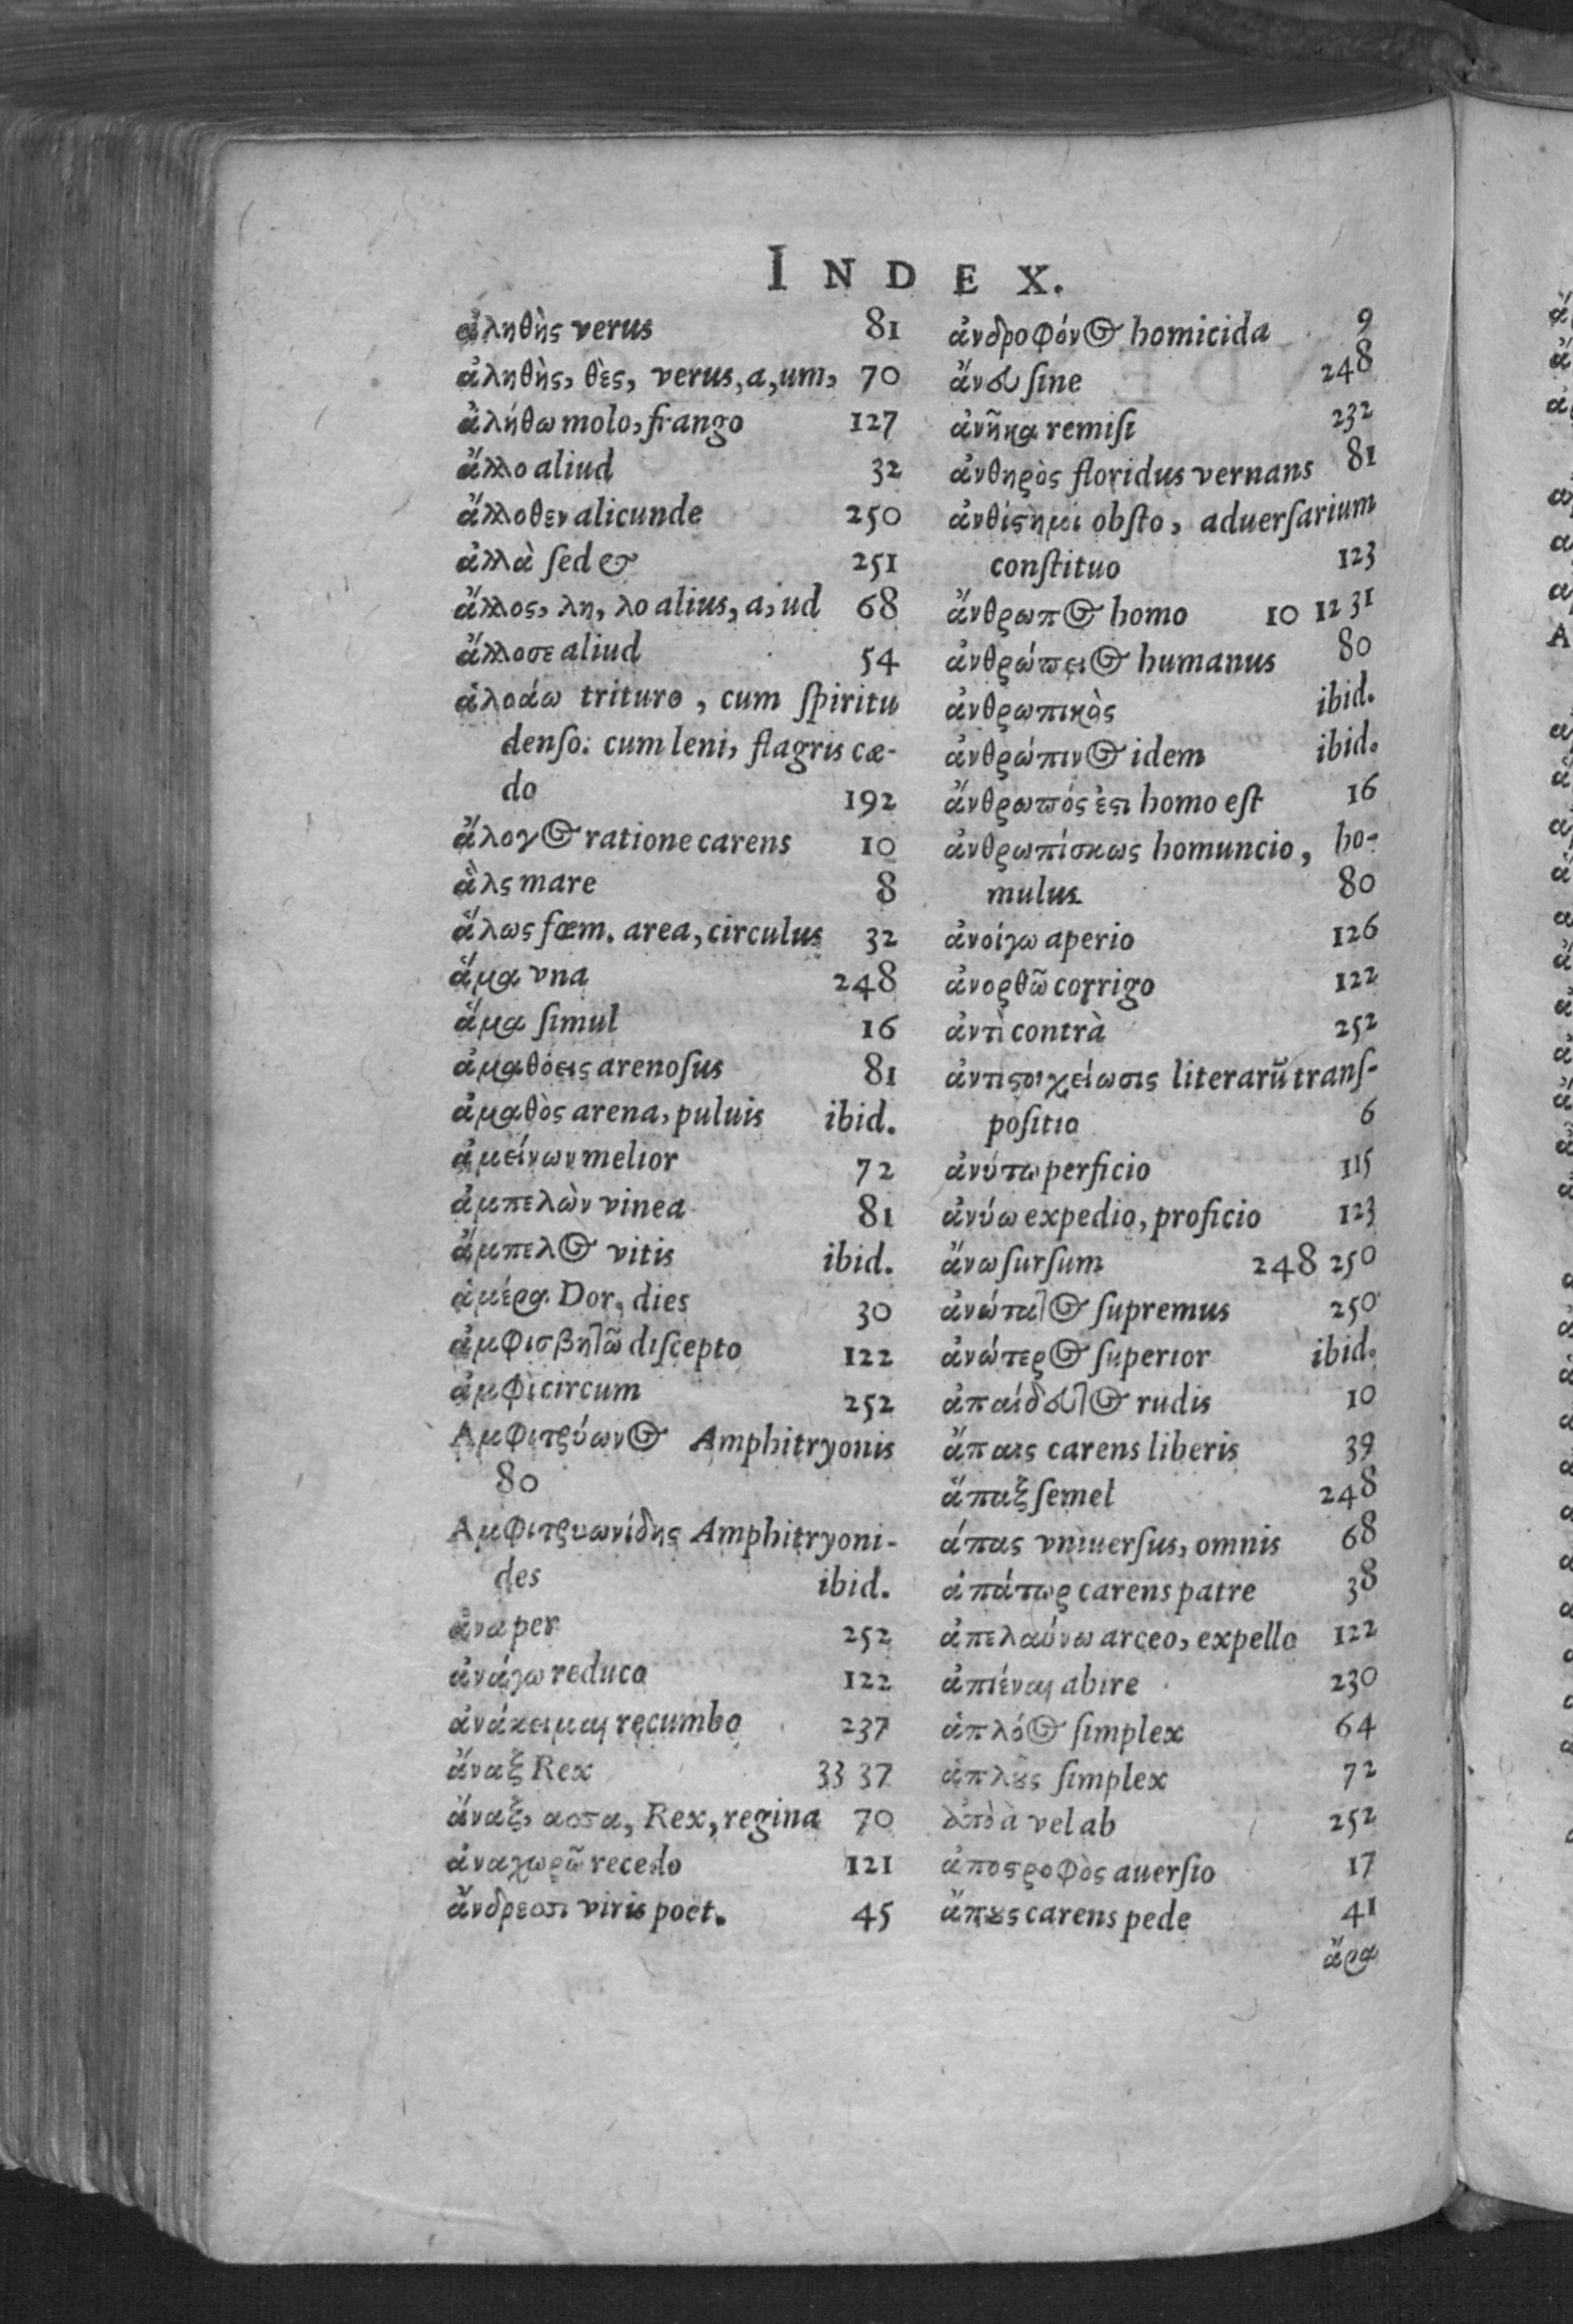 INDEX.
ἀληθὴς verus 81
ἀληθὴς, θὲς, verus, a, um, 70
ἀλήθω molo, frango 127
ἄλλο aliud 32
ἄλλοθεν alicunde 250
ἀλλὰ ſed & 251
ἄλλος, λη, λο alius, a, ud 68
ἄλλοσε aliud 54
ἀλοάω trituro, cum ſpiritu
denſo: cum leni, flagris cæ-
do 192
ἄλογος ratione carens 10
ἃλς mare 8
ἅλως fœm. area, circulus 32
ἅμα vna 248
ἅμα ſimul 16
ἀμαθόεις arenoſus 81
ἀμαθὸς arena, puluis ibid.
ἀμείνων melior 72
ἀμπελὼν vinea 81
ἄμπελος vitis ibid.
ἀμέρα Dor. dies 30
ἀμφισβητῶ diſcepto 122
ἀμφὶ circum 252
Αμφιτρύωνος Amphitryonis
80
Αμφιτρυωνίδης Amphitryoni-
des ibid.
ἀνα per 252
ἀνάγω reduco 122
ἀνάκειμαι recumbo 237
ἄναξ Rex 33 37
ἄναξ, ασσα, Rex, regina 70
ἀναχωρῶ recedo 121
ἄνδρεσσι viris poët. 45
ἀνδροφόνος homicida 9
ἄνευ ſine 248
ἀνῆκα remiſi 232
ἀνθηρὸς floridus vernans 81
ἀνθίστημι obſto, aduerſarium
conſtituo 123
ἄνθρωπος homo 10 12 31
ἀνθρώπειος humanus 80
ἀνθρωπικὸς ibid.
ἀνθρώπινος idem ibid.
ἄνθρωπός ἐστι homo eſt 16
ἀνθρωπίσκως homuncio, ho-
mulus 80
ἀνοίγω aperio 126
ἀνορθῶ corrigo 122
ἀντὶ contrà 252
ἀντιστοιχείωσις literarũ tranſ-
poſitio 6
ἀνύτω perficio 115
ἀνύω expedio, proficio 123
ἄνω ſurſum 248 250
ἀνώτατος ſupremus 250
ἀνώτερος ſuperior ibid.
ἀπαίδευτος rudis 10
ἄπαις carens liberis 39
ἅπαξ ſemel 248
ἅπας vniuerſus, omnis 68
ἀπάτωρ carens patre 38
ἀπελαύνω arceo, expello 122
ἀπιέναι abire 230
ἁπλόος ſimplex 64
ἁπλοῦς ſimplex 72
ἀπὸ à vel ab 252
ἀποστροφὸς auerſio 17
ἄπους carens pede 41
ἄρα